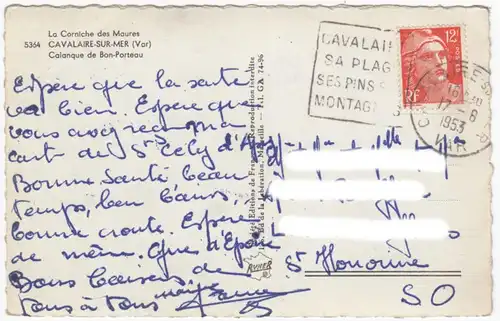 La Corniche des Maures
5364 CAVALAIRE-SUR-MER (Var)
Calanque de Bon-Porteau
CAVALAI
SA PLAG
SES PINS
MONTAG
12F
RF
16
17-8
1953
VAR
Espère que la santé
va bien. Espère que
vous avez reçu ma
cart de St Cély d'A
Bonne Santé beau
temps, bon bains,
bonne route. Espère
de même. Que d'Eau
Bons baisers de
Tous à Tous
Société Editions de France Reproduction interdite
de la Libération, Marseille - Tél. GA 74-96
St Honorine
SO